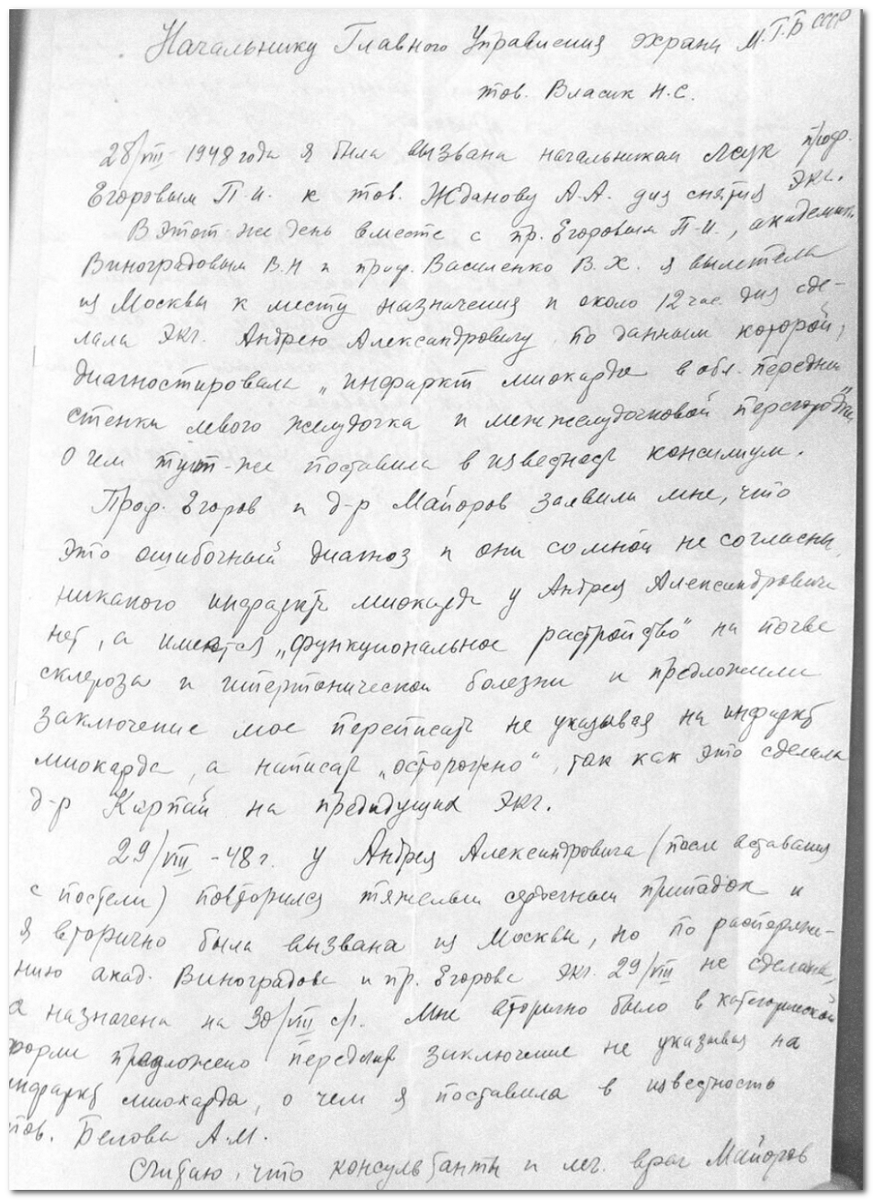 Начальнику Главного Управления охраны М.Г.Б СССР
тов. Власик Н.С.
28/VIII-1948 года я была вызвана начальником лсук проф.
Егоровым П.И. к тов. Жданову А.А. для снятия экг.
В этот же день вместе с пр. Егоровым П.И., академик.
Виноградовым В.Н и проф. Василенко В.Х. я вылетела
из Москвы к месту назначения и около 12 час. дня сде-
лала экг. Андрею Александровичу по данным которой,
диагностировала „инфаркт миокарда в обл. передней
стенки левого желудочка и межжелудочковой перегородки,
о чем тут-же поставила в известность консилиум.
Проф. Егоров и д-р Майоров заявили мне, что
это ошибочный диагноз и они со мной не согласны,
никакого инфаркта миокарда у Андрея Александровича
нет, а имеется „функциональное растройство" на почве
склероза и гипертонической болезни и предложили
заключение мое переписать не указывая на инфаркт
миокарда, а написать „осторожно", так как это сделала
д-р Карпай на предидущих экг.
29/VIII-48 г. у Андрея Александровича (после вставания
с постели) повторился тяжелый сердечный припадок и
я вторично была вызвана из Москвы, но по распоряже-
нию акад. Виноградова и пр. Егорова экг. 29/VIII не сделана,
а назначена на 30/VIII с/г. Мне вторично было в категорической
форме предложено переделать заключение не указывая на
инфаркт миокарда, о чем я поставила в известность
тов. Белова А.М.
Считаю, что консультанты и леч. врач Майоров